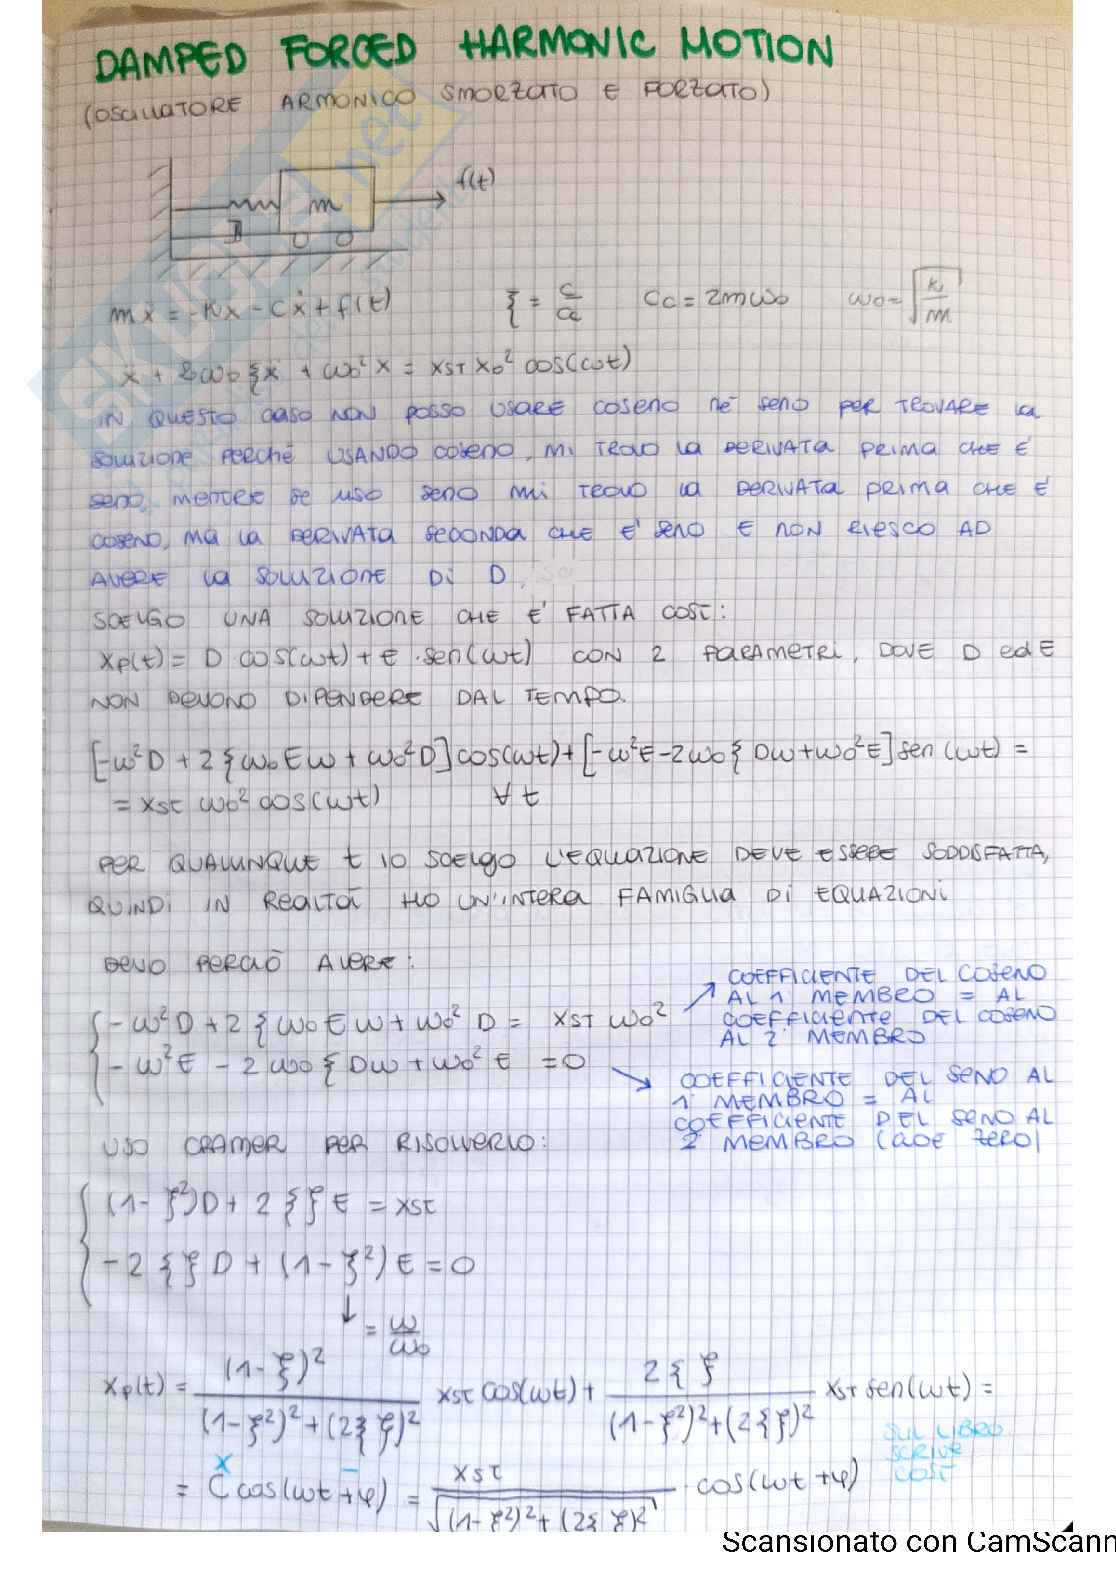 DAMPED FORCED HARMONIC MOTION
(OSCILLATORE ARMONICO SMORZATO E FORZATO)
f(t)
m
mẍ = -Kx - Cẋ + f(t) ξ = C/Cc Cc = 2mω₀ ω₀ = √(K/m)
ẍ + 2ω₀ξẋ + ω₀²x = xST x₀² cos(ωt)
IN QUESTO CASO NON POSSO USARE COSENO NÉ SENO PER TROVARE LA
SOLUZIONE PERCHÉ USANDO COSENO, MI TROVO LA DERIVATA PRIMA CHE È
SENO, MENTRE SE USO SENO MI TROVO LA DERIVATA PRIMA CHE È
COSENO, MA LA DERIVATA SECONDA CHE E' SENO E NON RIESCO AD
AVERE LA SOLUZIONE DI D.
SCELGO UNA SOLUZIONE CHE E' FATTA COSÌ:
xp(t) = D cos(ωt) + E · sen(ωt) CON 2 PARAMETRI, DOVE D ed E
NON DEVONO DIPENDERE DAL TEMPO.
[-ω²D + 2ξω₀Eω + ω₀²D]cos(ωt) + [-ω²E - 2ω₀ξDω + ω₀²E]sen(ωt) =
= xST ω₀² cos(ωt) ∀t
PER QUALUNQUE t IO SCELGO L'EQUAZIONE DEVE ESSERE SODDISFATTA,
QUINDI IN REALTÀ HO UN'INTERA FAMIGLIA DI EQUAZIONI
DEVO PERCIÒ AVERE:
-ω²D + 2ξω₀Eω + ω₀²D = xST ω₀²
COEFFICIENTE DEL COSENO
AL 1° MEMBRO = AL
COEFFICIENTE DEL COSENO
AL 2° MEMBRO
-ω²E - 2ω₀ξDω + ω₀²E = 0
COEFFICIENTE DEL SENO AL
1° MEMBRO = AL
COEFFICIENTE DEL SENO AL
2° MEMBRO (CIOÈ ZERO)
USO CRAMER PER RISOLVERLO:
(1-ζ²)D + 2ξζE = xST
-2ξζD + (1-ζ²)E = 0
= ω/ω₀
xp(t) = (1-ζ)²/((1-ζ²)²+(2ξζ)²) xST cos(ωt) + 2ξζ/((1-ζ²)²+(2ξζ)²) xST sen(ωt) =
SUL LIBRO
SCRIVE
COSÌ
X -
= C cos(ωt+φ) = xST/√((1-ζ²)²+(2ξζ)²) · cos(ωt+φ)
Scansionato con CamScann